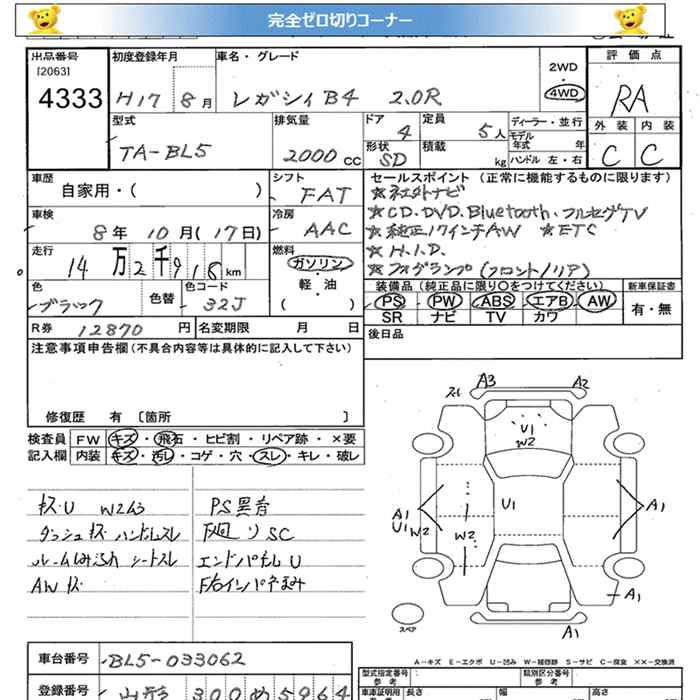 完全ゼロ切りコーナー
出品番号 初度登録年月 車名・グレード 2WD 評価点
[2063]
4333 H17 8月 レガシィB4 2.0R 4WD RA
型式 排気量 ドア 定員 ディーラー・並行 外装 内装
TA-BL5 2000cc 4 5人 モデル年式 年
形状 SD 積載 kg ハンドル 左・右 C C
車歴 自家用・( ) シフト FAT セールスポイント (正常に機能するものに限ります)
☆社外ナビ
車検 8年10月(17日) 冷房 AAC ☆CD.DVD.Bluetooth.フルセグTV
☆純正17インチAW ☆ETC
走行 14万2千918km 燃料 ガソリン・軽・油 ( ) ☆H.I.D.
☆フォグランプ(フロント/リア)
色 ブラック 色替 色コード 32J 装備品 (純正品に限り〇をつけてください) 新車保証書
PS PW ABS エアB AW 有・無
SR ナビ TV カワ
R券 12870円 名変期限 月 日 後日品
注意事項申告欄(不具合内容等は具体的に記入して下さい)
修復歴 有 〔箇所 〕
検査員 FW キズ・飛石・ヒビ割・リペア跡・×要
記入欄 内装 キズ・汚レ・コゲ・穴・スレ・キレ・破レ
キズ.U W2大小 PS異音
ダッシュキズ ハンドルスレ 下廻りSC
シートスレ エンドパネルU
AWキズ
スレ A3 A2
U1
W2
U1
A1 U1 W2 W2 A1
A1
A1
スペア
A-キズ E-エクボ U-凹み W-補修跡 S-サビ C-腐食 ××-交換済
車台番号 BL5-033062 型式指定番号 参考 類別区分番号 参考
登録番号 山形 300 め 5964 車庫証明用 長さ 幅 高さ